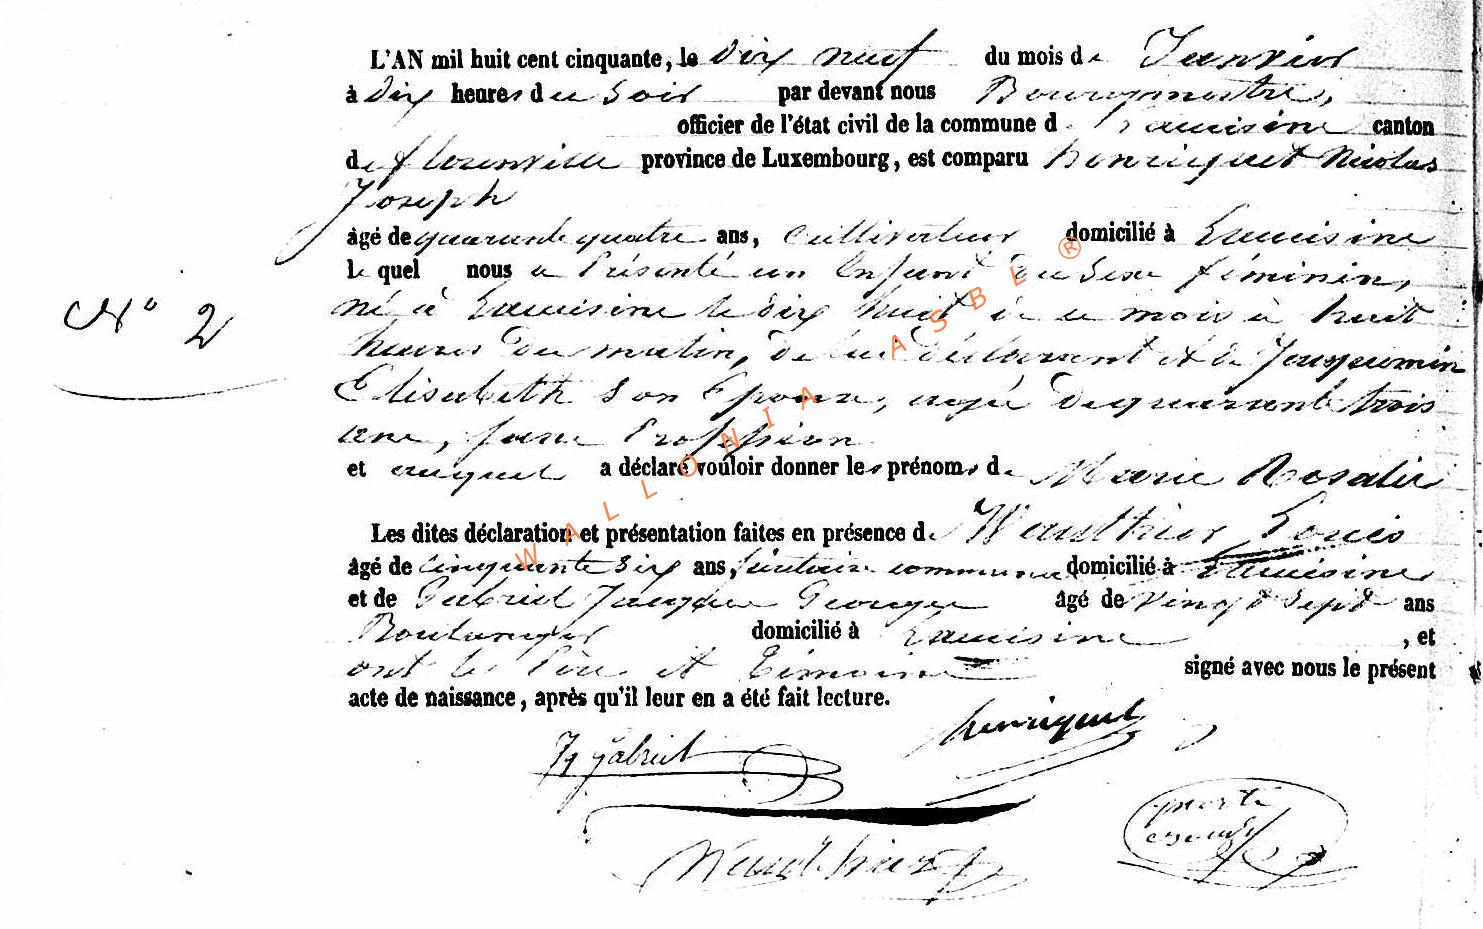 L'AN mil huit cent cinquante, le Dix neuf du mois de Janvier
à Dix heures du Soir par devant nous Bourgmestre,
officier de l'état civil de la commune de Lacuisine canton
de florenville province de Luxembourg, est comparu henriquet Nicolas
Joseph
âgé de quarante quatre ans, Cultivateur domicilié à Lacuisine
le quel nous a Présenté un Enfant du Sexe féminin,
N° 2
né à Lacuisine le dix huit de ce mois à huit
heures du matin, de lui déclarant et de Jacquemin
Elisabeth son Epouse, agée de quarante trois
ans, sans Profession
et auquel a déclaré vouloir donner les prénoms de Marie Rosalie
Les dites déclaration et présentation faites en présence de Wauthier Louis
âgé de cinquante six ans, domicilié à Lacuisine
et de Gabriel Jacques Georges âgé de vingt sept ans
Boulanger domicilié à Lacuisine , et
ont le Père et Témoins signé avec nous le présent
acte de naissance, après qu'il leur en a été fait lecture.
henriquet
Jq gabriel
Wauthier
WALLONIA ASBL ®